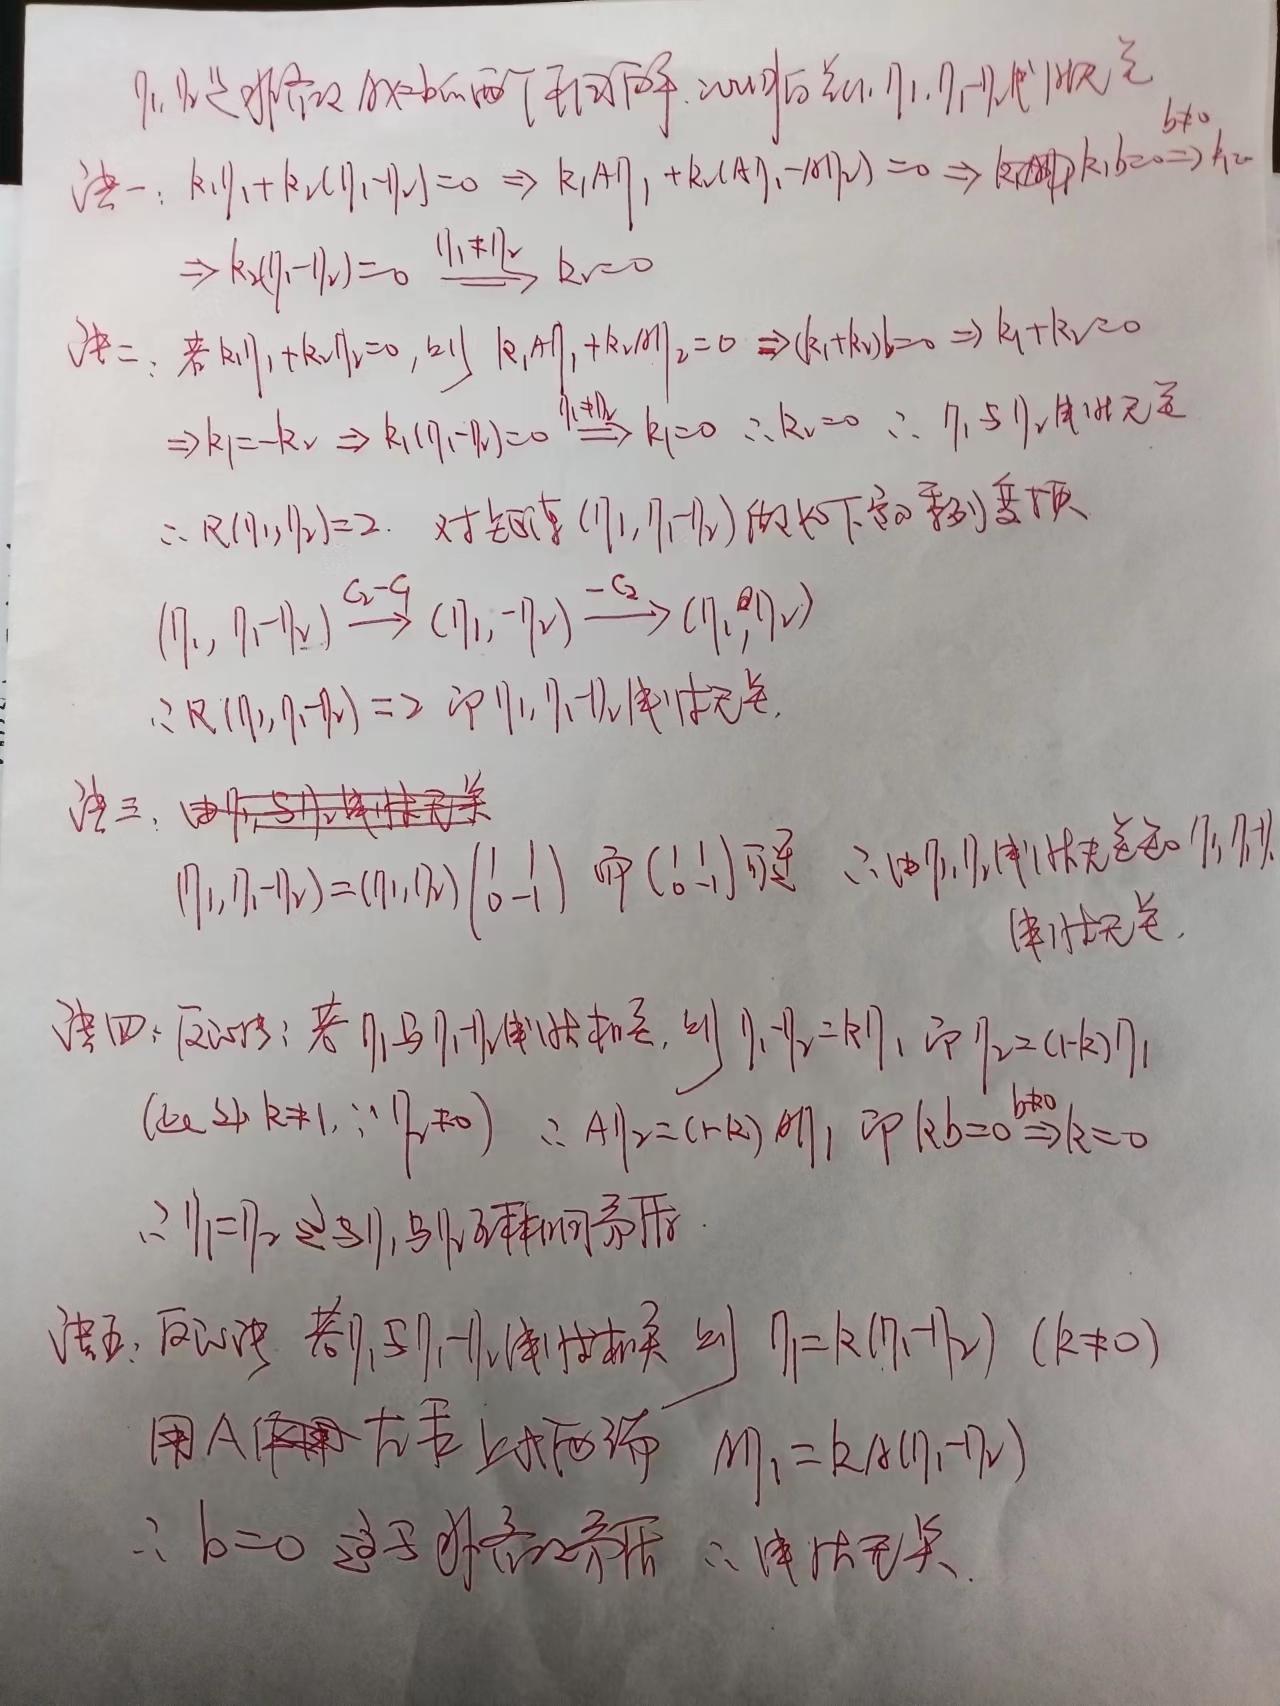 η₁,η₂是非齐次Ax=b的两个不同的解.证明向量组η₁,η₁-η₂线性无关
法一: k₁η₁+k₂(η₁-η₂)=0 ⇒ k₁Aη₁+k₂(Aη₁-Aη₂)=0 ⇒ k₁b=0 ⇒(b≠0) k₁=0
⇒ k₂(η₁-η₂)=0 ⇒(η₁≠η₂) k₂=0
法二: 若k₁η₁+k₂η₂=0, 则 k₁Aη₁+k₂Aη₂=0 ⇒(k₁+k₂)b=0 ⇒ k₁+k₂=0
⇒k₁=-k₂ ⇒ k₁(η₁-η₂)=0 ⇒(η₁≠η₂) k₁=0 ∴k₂=0 ∴ η₁与η₂线性无关
∴R(η₁,η₂)=2. 对矩阵(η₁,η₁-η₂)做如下初等列变换
(η₁, η₁-η₂) →(C₂-C₁) (η₁,-η₂) →(-C₂) (η₁,η₂)
∴R(η₁,η₁-η₂)=2 即η₁,η₁-η₂线性无关.
法三:
(η₁,η₁-η₂)=(η₁,η₂)(1 1; 0 -1) 而(1 1; 0 -1)可逆 ∴由η₁,η₂线性无关知η₁,η₁-η₂
线性无关.
法四: 反证法: 若η₁与η₁-η₂线性相关, 则 η₁-η₂=kη₁ 即η₂=(1-k)η₁
(k≠1, ∵η₂≠0) ∴Aη₂=(1-k)Aη₁ 即kb=0 ⇒(b≠0) k=0
∴η₁=η₂ 这与η₁与η₂不同矛盾.
法五: 反证法 若η₁与η₁-η₂线性相关 则 η₁=k(η₁-η₂) (k≠0)
用A左乘上式两端 Aη₁=kA(η₁-η₂)
∴b=0 这与非齐次矛盾 ∴线性无关.